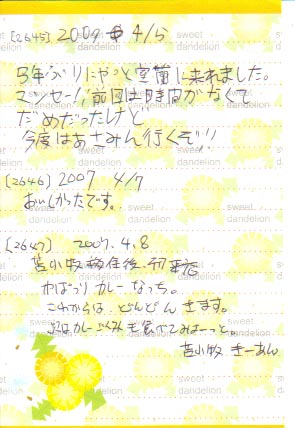 [2645] 2007 4/5
3年ぶりにやっと室蘭に来れました。
前回は時間がなくて
だめだったけど
今度はあさみん行くぞ!!
[2646] 2007 4/7
おいしかったです。
[2647] 2007.4.8
苫小牧
やはりカレーなっち。
これからは、どんどんきます。
次はカレー も食べてみよーっと。
苫小牧 きーあん
sweet dandelion